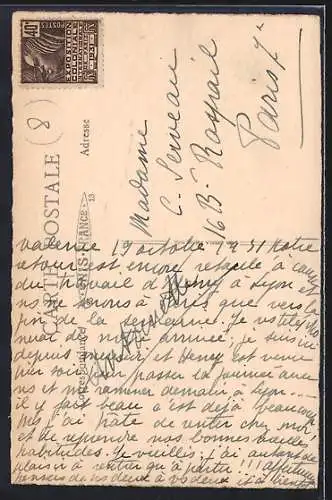 40c
POSTES
EXPOSITION
COLONIALE
INTERNATIONALE
PARIS 1931
(8)
CARTE POSTALE
Correspondance
Adresse
13
Madame
C. Serveau
16 B. Raspail
Paris 7e
Valence 19 octobre 1931 Notre
retour est encore retardé à cause
du travail d'Henry à Lyon et
ns ne serons à Paris que vers la
fin de la semaine. Je
mot de mon arrivée; je suis ici
depuis et Henry est venu
hier soir pour passer la journée avec
ns et ns ramener demain à Lyon...
il fait beau à est déjà beaucoup
Mes j'ai hâte de rentrer chez moi
et de reprendre nos bonnes
habitudes. Je vieillis; j'ai autant de
plaisir à rentrer qu'à partir!!! affectueuses
pensées de ns deux à vs deux et à bientôt